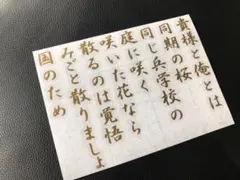 貴様と俺とは
同期の桜
同じ兵学校の
庭に咲く
咲いた花なら
散るのは覚悟
みごと散りましょ
国のため